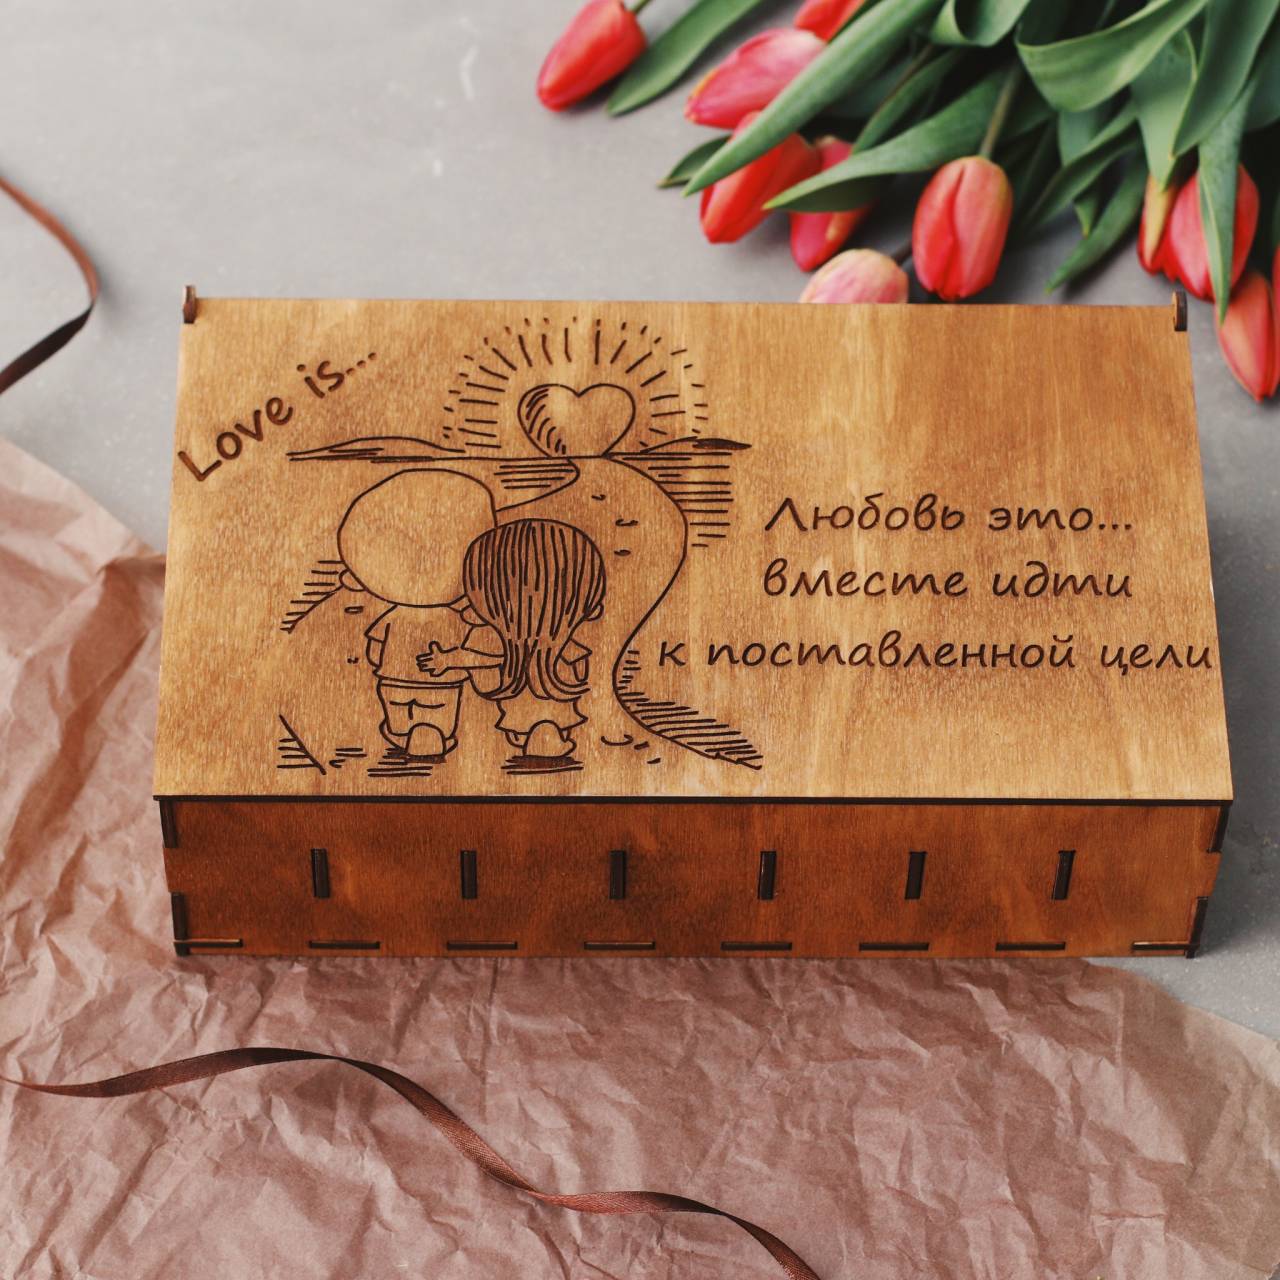 Love is...
Любовь это...
вместе идти
к поставленной цели